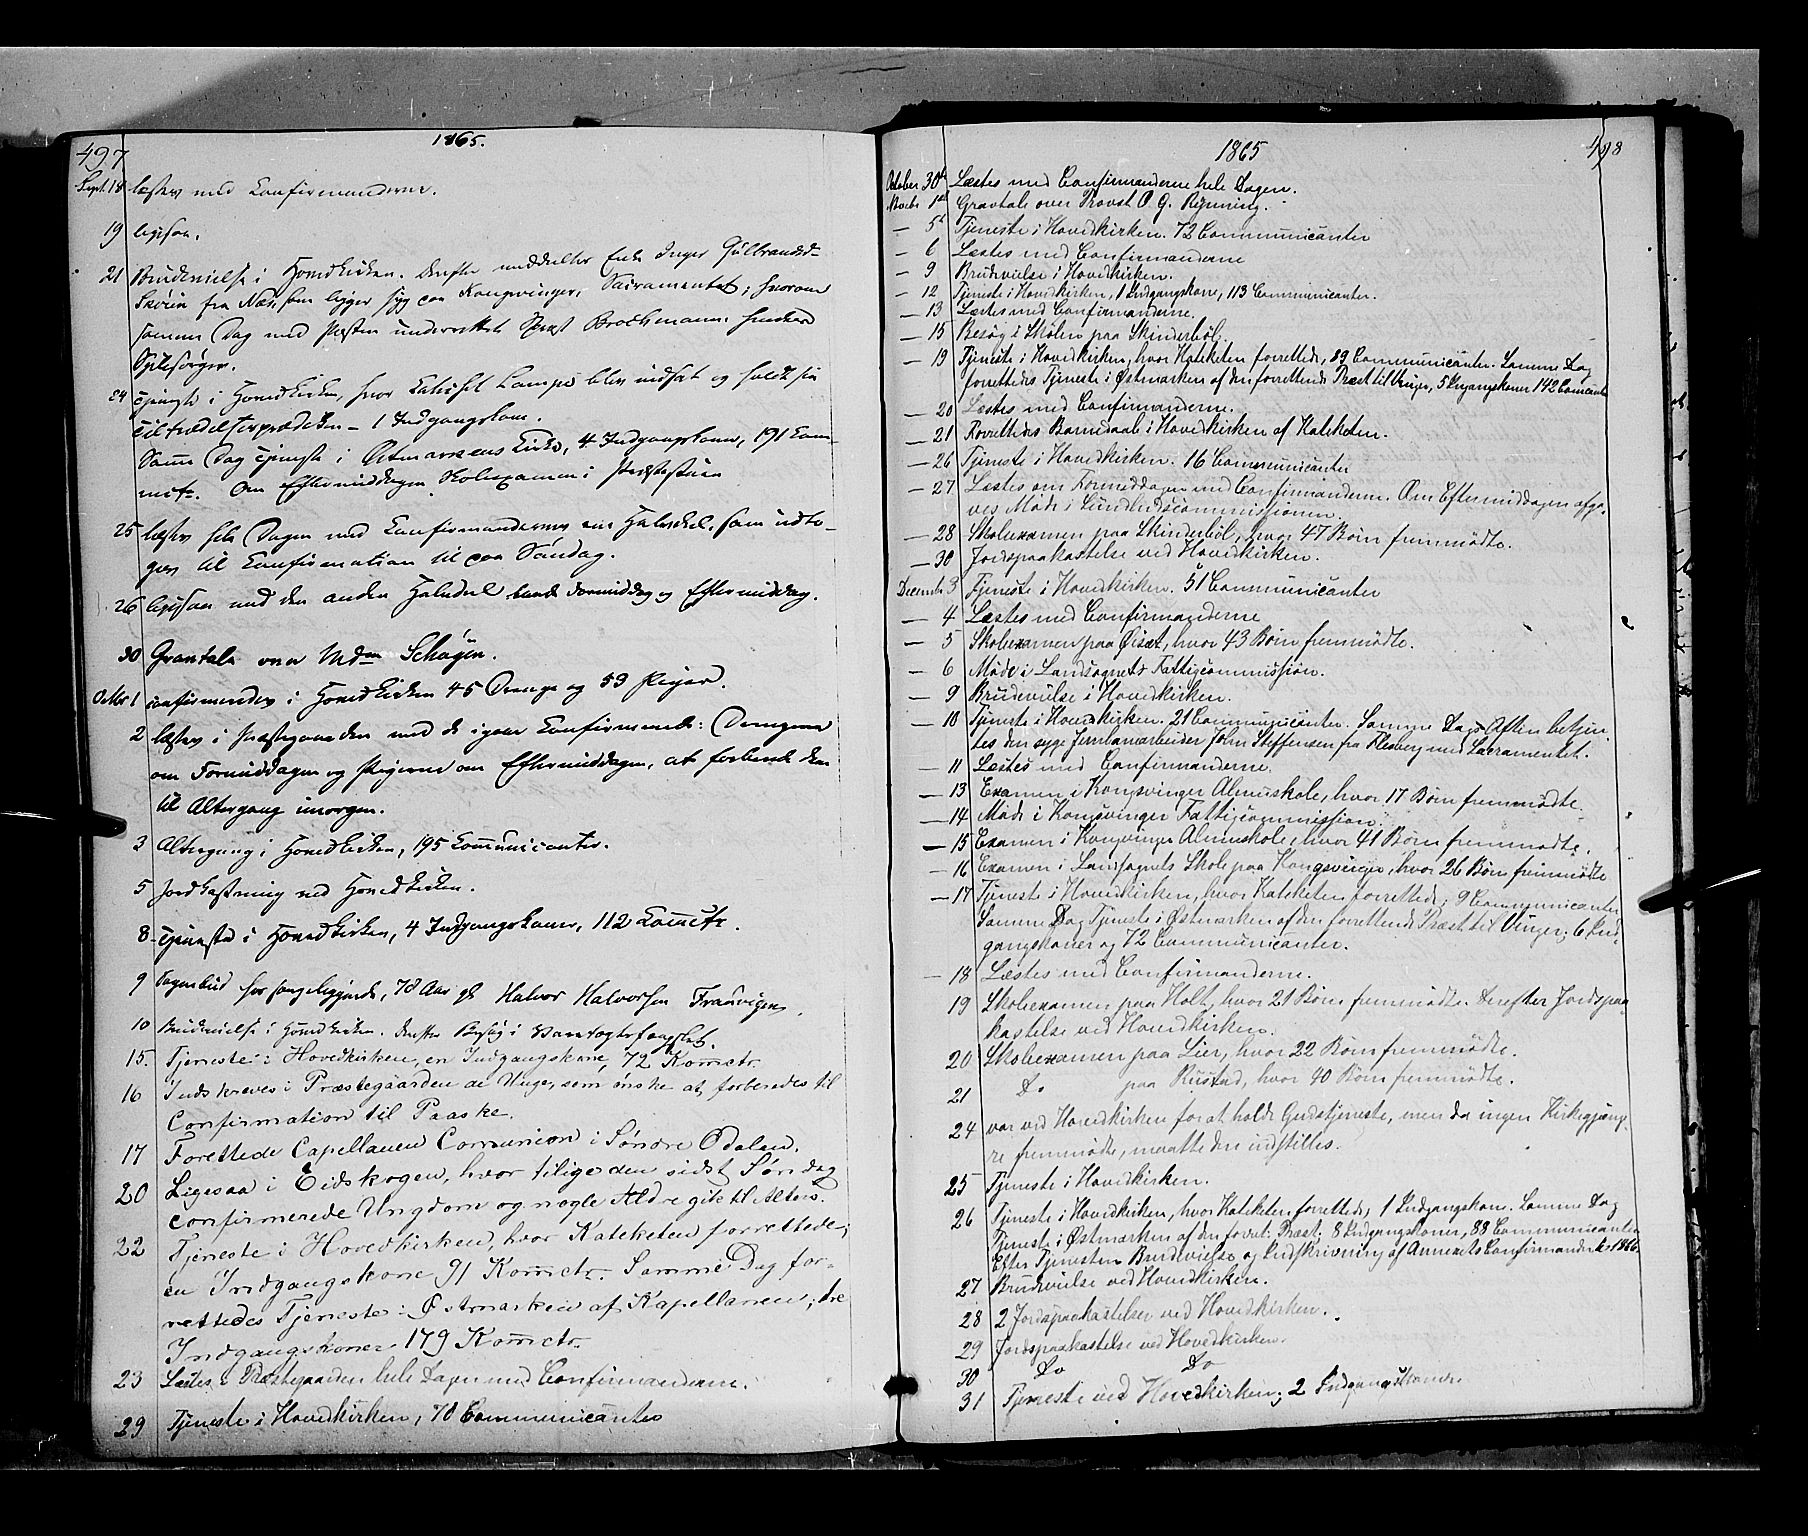 497
1865.
Sept. 18 læstes med Confirmanderne.
19 ligesaa.
21 Brudevielse i Hovedkirken. Derefter meddeltes Enke Inger Gulbrandsd-
fra Næs, som ligger syg paa Kongsvinger, Sacramentet; hvorom
samme Dag med Posten underrettet Provst Brochmann hendes
Sjælesørger.
24 Tjeneste i Hovedkirken, hvor Catechet Lampe blev indsat og holdt sin
Tiltrædelsesprædiken – 1 Indgangskone.
Samme Dag Tjeneste i Østmarkens Kirke, 4 Indgangskoner, 191 Com-
mct. Om Eftermiddagen Skoleexamen i Præstestuen
25 læstes hele Dagen med Confirmanderne en Halvdel, som udto-
ges til Confirmation til paa Søndag.
26 ligesaa med den anden Halvdel baade Formiddag og Eftermiddag.
30 Gravtale over Mdm Schøyen.
Octbr 1 confirmeredes i Hovedkirken 45 Drenge og 59 Piger.
2 læstes i Præstegaarden med de igaar Confirmerede: Drengene
om Formiddagen og Pigerne om Eftermiddagen, at forberede dem
til Altergang imorgen.
3 Altergang i Hovedkirken, 195 Communicanter.
5 Jordkastning ved Hovedkirken.
8 Tjeneste i Hovedkirken, 4 Indgangskoner, 112 Comctr.
9 Sognebud for sengeliggende, 78 Aar gl. Halvor Halvorsen
10 Brudevielse i Hovedkirken. Derefter Besøg i
15. Tjeneste i Hovedkirken, en Indgangskone, 72 Komctr.
16 Indskreves i Præstegaarden de Unge, som ønske at forberedes til
Confirmation til Paaske.
17 Forettede Capellanen Comunion i Søndre Odalen.
20 Ligesaa i Eidskogen, hvor tilige den sidst Søndag
confirmerede Ungdom og nogle Ældre gik til Alters.
22 Tjeneste i Hovedkirken, hvor Kateketen forrettede;
en Indgangskone 91 Komctr. Samme Dag for-
rettedes Tjeneste i Østmarken af Kapellanen; tre
Indgangskoner 179 Komctr.
23 Læstes i Præstegaarden hele Dagen med Confirmanderne.
29 Tjeneste i Hovedkirken, 70 Communicanter
1865
498
October 30te Læstes med Confirmanderne hele Dagen.
Novbr 1ste Gravtale over Provst O. G. Rynning.
– 5t Tjeneste i Hovedkirken. 72 Communicanter
– 6 Læstes med Confirmanderne
– 9 Brudevielse i Hovedkirken.
– 12 Tjeneste i Hovedkirken, 1 Indgangskone, 113 Communicanter.
– 13 Læstes med Confirmanderne.
– 15 Besøg i Skolen paa Skinderbøl.
– 19 Tjeneste i Hovedkirken, hvor Kateketen forrettede, 89 Communicanter. Samme Dag
forrettedes Tjeneste i Østmarken af den forrettende Præst til Vinger, 5 Ingangskoner 142 Comcante
– 20 Læstes med Confirmanderne.
– 21 Forrettedes Barnedaab i Hovedkirken af Kateketen.
– 26 Tjeneste i Hovedkirken. 16 Communicanter
– 27 Læstes om Formiddagen med Confirmanderne. Om Eftermiddagen afga-
ves Møde i Sundhedscommissionen.
– 28 Skoleexamen paa Skinderbøl, hvor 47 Børn fremmødte.
– 30 Jordspaakastelse ved Hovedkirken.
Decembr 3 Tjeneste i Hovedkirken. 51 Communicanter
– 4 Læstes med Confirmanderne
– 5 Skoleexamen paa Øiset, hvor 43 Børn fremmødte.
– 6 Møde i Landsognets Fattigcommission.
– 9 Brudevielse i Hovedkirken.
– 10 Tjeneste i Hovedkirken. 21 Communicanter. Samme Dags Aften betjen-
tes den syge Jernbanearbeider John Steffensen fra Flesberg med Sacramentet.
– 11 Læstes med Confirmanderne.
– 13 Examen i Kongsvinger Almueskole, hvor 17 Børn fremmødte.
– 14 Møde i Kongsvinger Fattigcommission.
– 15 Examen i Kongsvinger Almueskole, hvor 41 Børn fremmødte.
– 16 Examen i Landsognets Skole paa Kongsvinger, hvor 26 Børn fremmødte
– 17 Tjeneste i Hovedkirken, hvor Kateketen forrettede; 9 Communicanter
Samme Dag Tjeneste i Østmarken af den forrettende Præst til Vinger; 6 Ind-
gangskoner og 72 Communicanter.
– 18 Læstes med Confirmanderne.
19 Skoleexamen paa Holt, hvor 21 Børn fremmødte. Derefter Jordspaa-
kastelse ved Hovedkirken.
20 Skoleexamen paa Lier, hvor 22 Børn fremmødte.
21 Do paa Rustad, hvor 40 Børn fremmødte.
24 var ved Hovedkirken for at holde Gudstjeneste, men da ingen Kirkegjæng-
re fremmødte, maatte den indstilles.
25 Tjeneste i Hovedkirken.
26 Tjeneste i Hovedkirken, hvor Kateketen forrettede, 1 Indgangskone. Samme Dag
Tjeneste i Østmarken af den forret. Præst; 8 Indgangskoner, 88 Communicanter
Efter Tjenesten Brudevielse og Indskrivning af Annexets Confirmander for 1866.
27 Brudevielse ved Hovedkirken.
28 2 Jordspaakastelser ved Hovedkirken.
29 Jordspaakastelse ved Hovedkirken.
30 Do Do
31 Tjeneste ved Hovedkirken; 2 Indgangskoner.